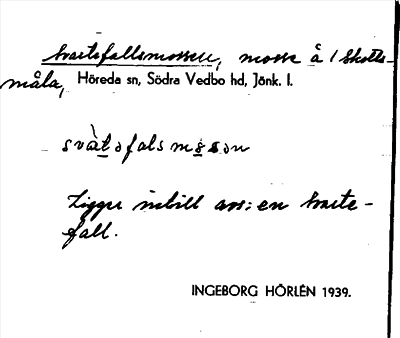 Svartefallsmossen, mosse å 1 Skotts-
måla, Höreda sn, Södra Vedbo hd, Jönk. l.
svàtəfalsmosən
Ligger intill avs: en Svarte-
fall.
INGEBORG HÖRLÉN 1939.